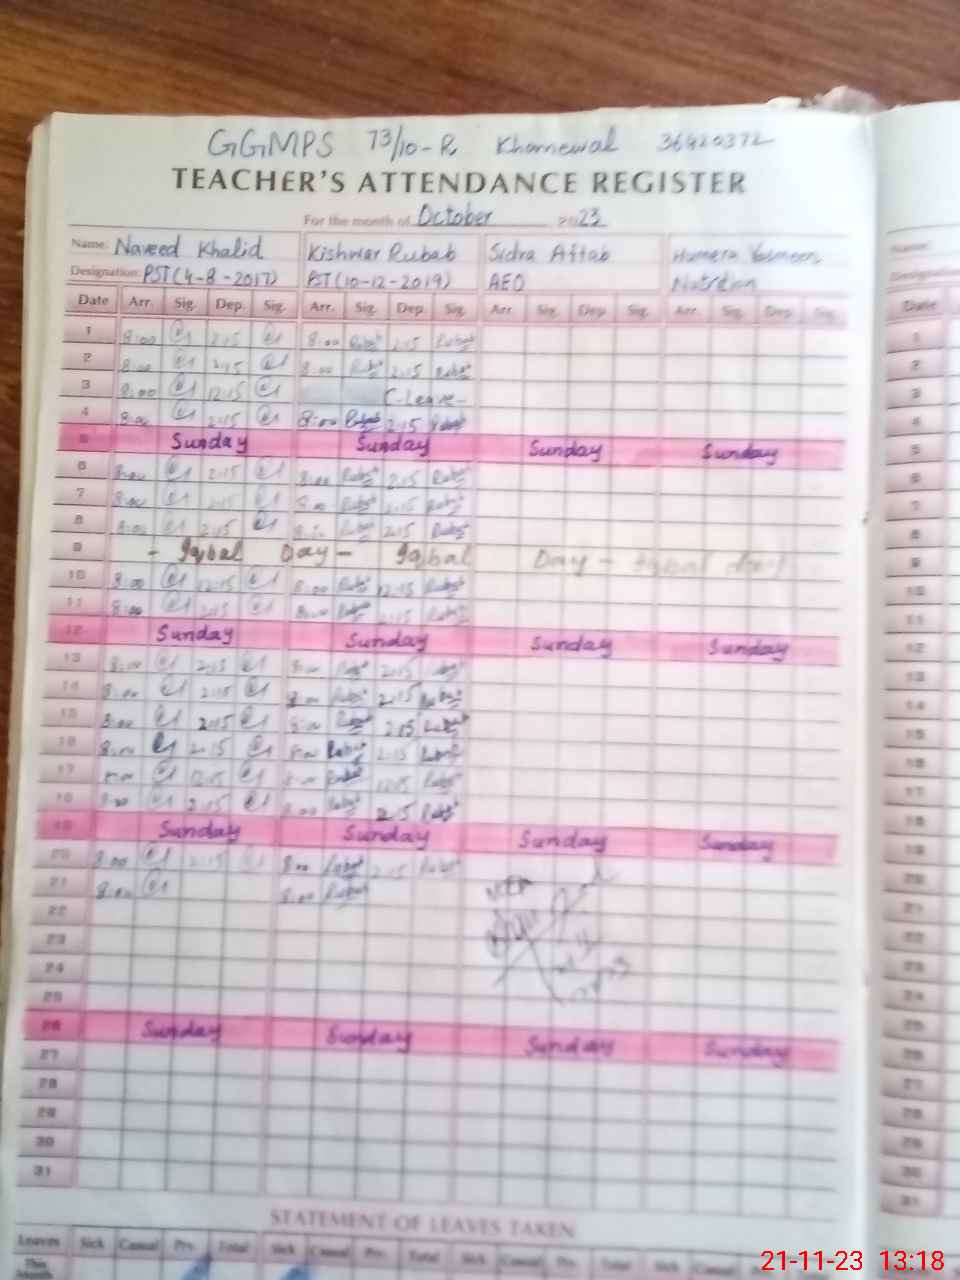 GGMPS 73/10-R Khanewal 36420372
TEACHER'S ATTENDANCE REGISTER
For the month of October 2023
Name: Naveed Khalid Kishwar Rubab Sidra Aftab Humera Yasmeen
Designation: PST (4-8-2017) PST (10-12-2019) AEO Nutrition
Date Arr. Sig. Dep. Sig. Arr. Sig. Dep. Sig. Arr. Sig. Dep. Sig. Arr. Sig. Dep. Sig.
1 8:00 2:15 8:00 Rubab 2:15 Rubab
2 8:00 2:15 8:00 Rubab 2:15 Rubab
3 8:00 12:15 C-Leave-
4 8:00 2:15 8:00 Rubab 2:15 Rubab
5 Sunday Sunday Sunday Sunday
6 8:00 2:15 8:00 Rubab 2:15 Rubab
7 8:00 2:15 8:00 Rubab 2:15 Rubab
8 8:00 2:15 Rubab 2:15 Rubab
9 - Iqbal Day - Iqbal Day - Iqbal day
10 8:00 12:15 8:00 Rubab 12:15 Rubab
11 8:00 2:15 8:00 Rubab 2:15 Rubab
12 Sunday Sunday Sunday Sunday
13 8:00 2:15 8:00 Rubab 2:15 Rubab
14 8:00 2:15 8:00 Rubab 2:15 Rubab
15 8:00 2:15 8:00 Rubab 2:15 Rubab
16 8:00 2:15 8:00 Rubab 2:15 Rubab
17 8:00 12:15 8:00 Rubab 12:15 Rubab
18 8:00 2:15 8:00 Rubab 2:15 Rubab
19 Sunday Sunday Sunday Sunday
20 8:00 2:15 8:00 Rubab 2:15 Rubab
21 8:00 8:00 Rubab
22
23
24
25
26 Sunday Sunday Sunday Sunday
27
28
29
30
31
STATEMENT OF LEAVES TAKEN
Leaves Sick Casual Prv. Total Sick Casual Prv. Total Sick Casual Prv. Total Sick Casual
This Month
21-11-23 13:18